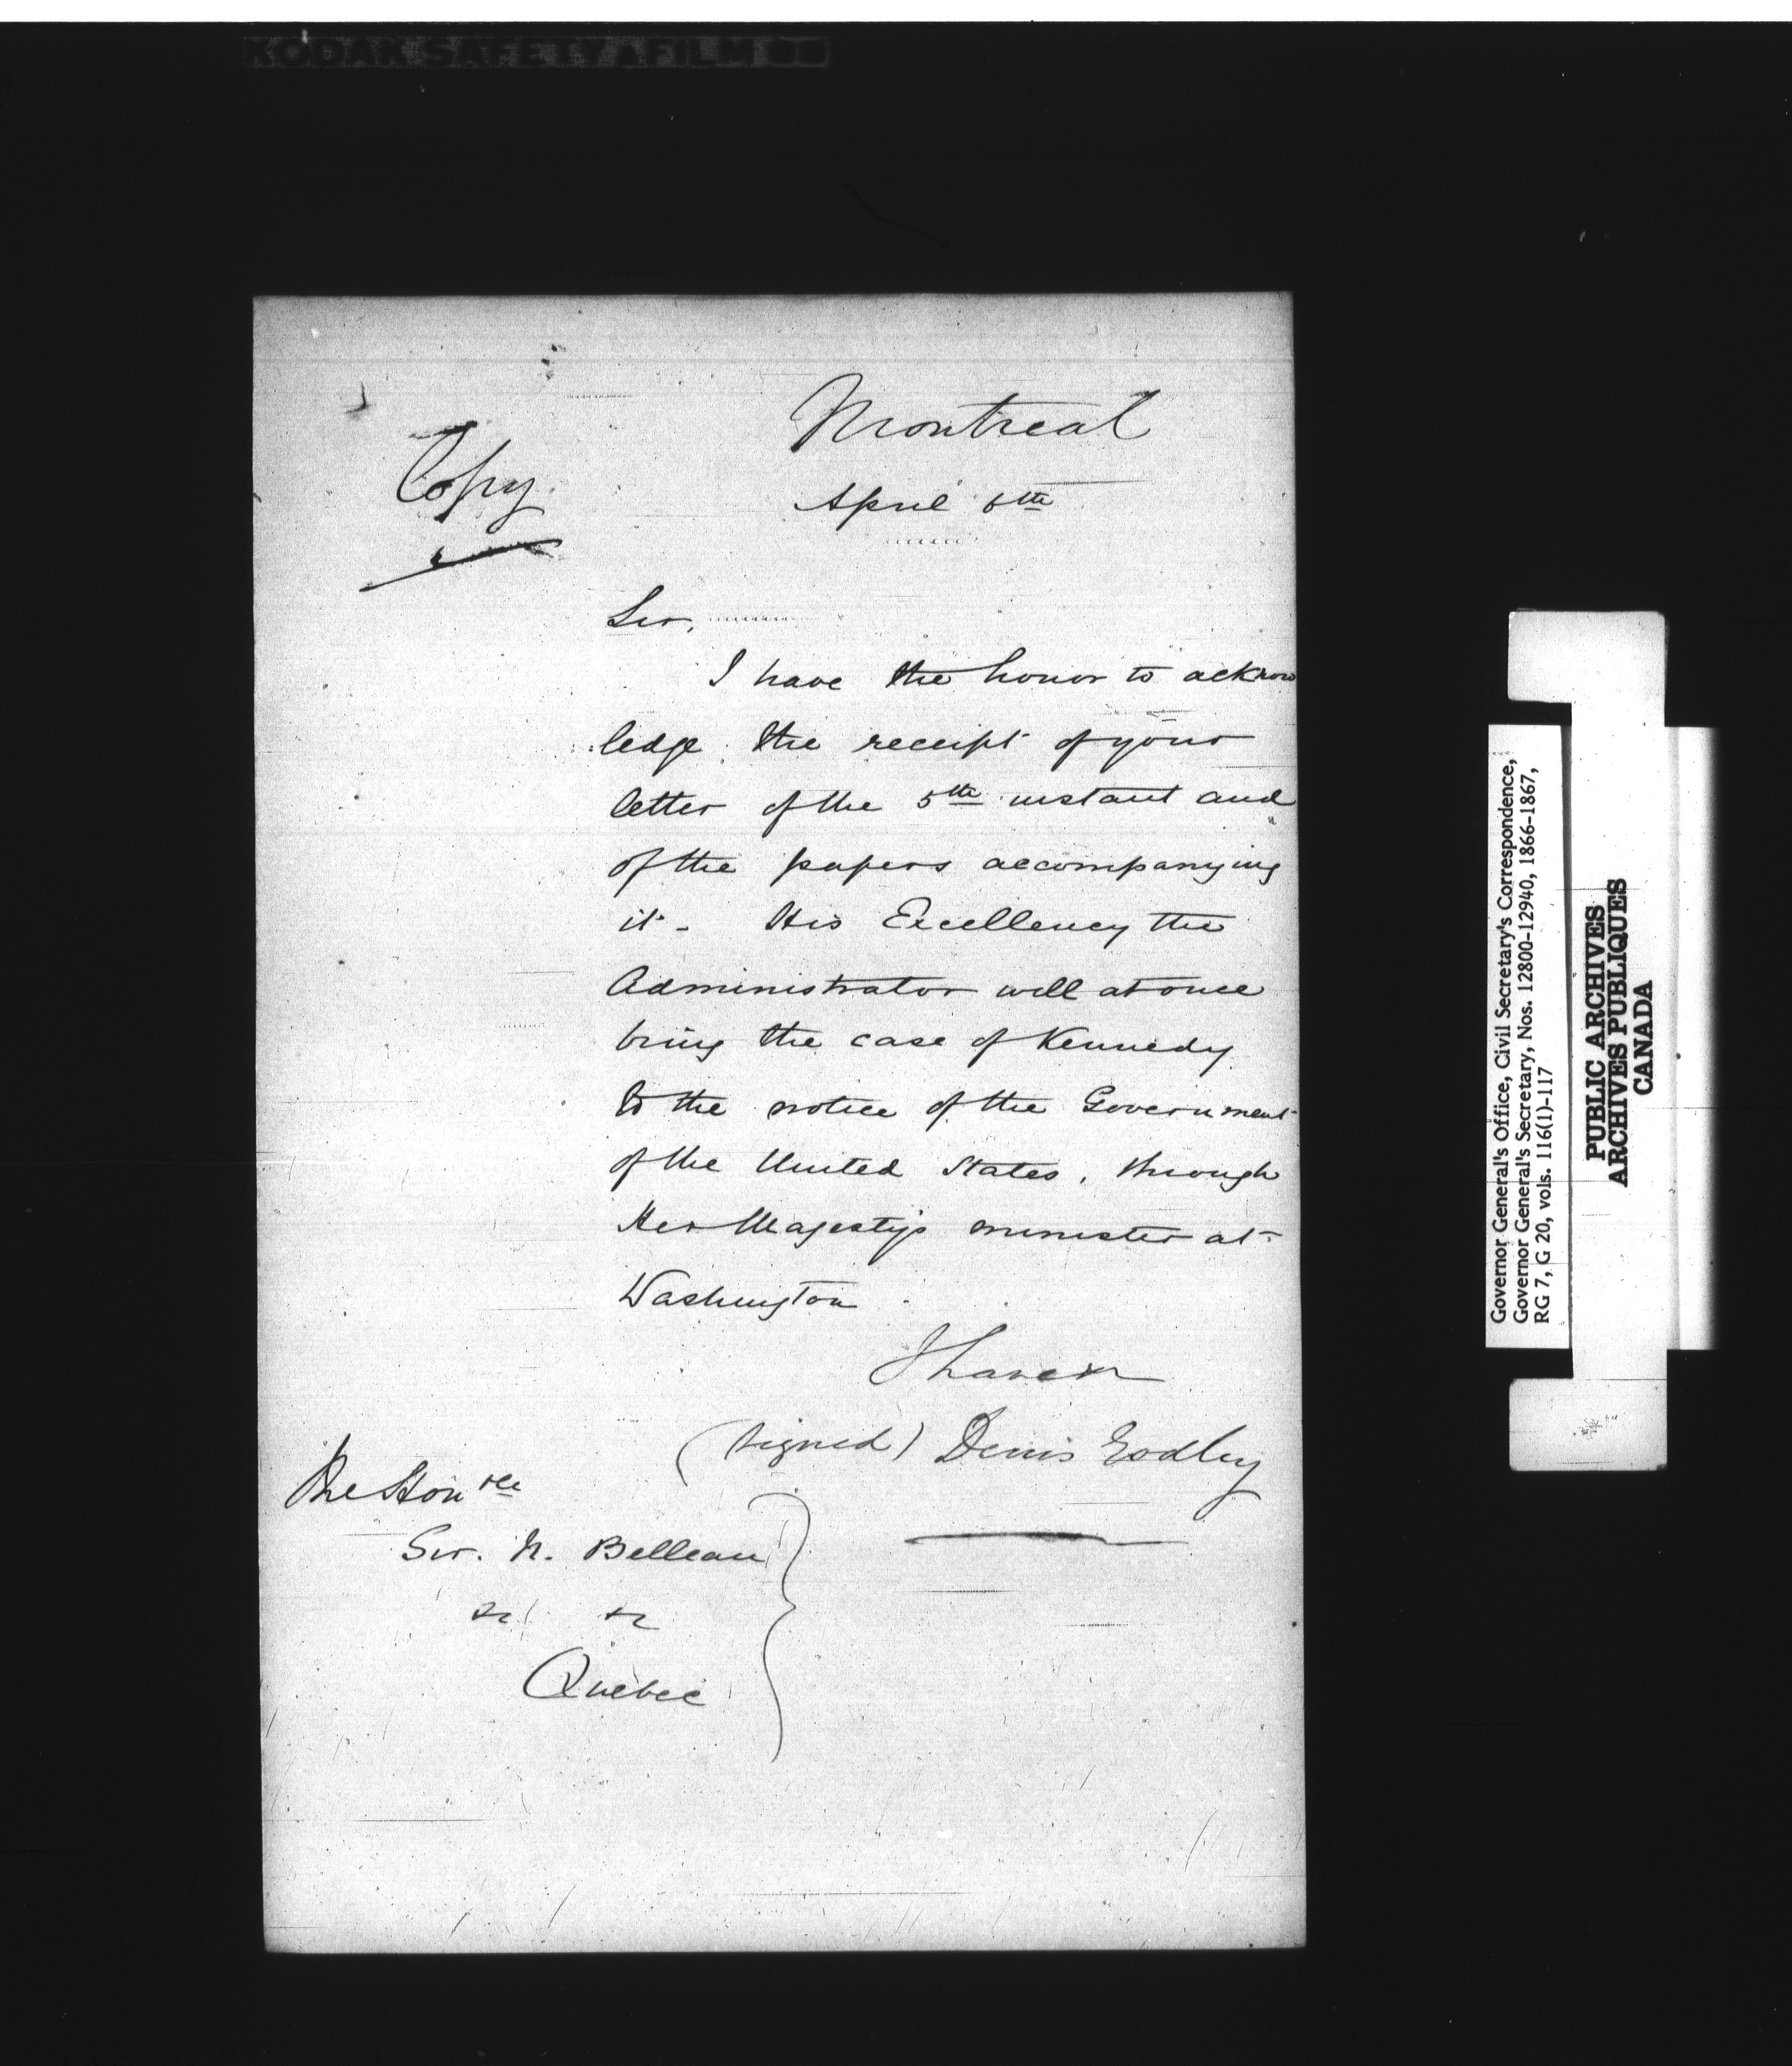 KODAK SAFETY FILM
Montreal
Copy
April 6th
Sir,
I have the honor to acknow
ledge the receipt of your
letter of the 5th instant and
of the papers accompanying
it - His Excellency the
Administrator will at once
bring the case of Kennedy
to the notice of the Government
of the United States, through
Her Majesty's minister at
Washington.
I have &c
(signed) Denis Godley
The Honble
Sir. N. Belleau
&c &c
Quebec
Governor General's Office, Civil Secretary's Correspondence,
Governor General's Secretary, Nos. 12800-12940, 1866-1867,
RG 7, G 20, vols. 116(1)-117
PUBLIC ARCHIVES
ARCHIVES PUBLIQUES
CANADA